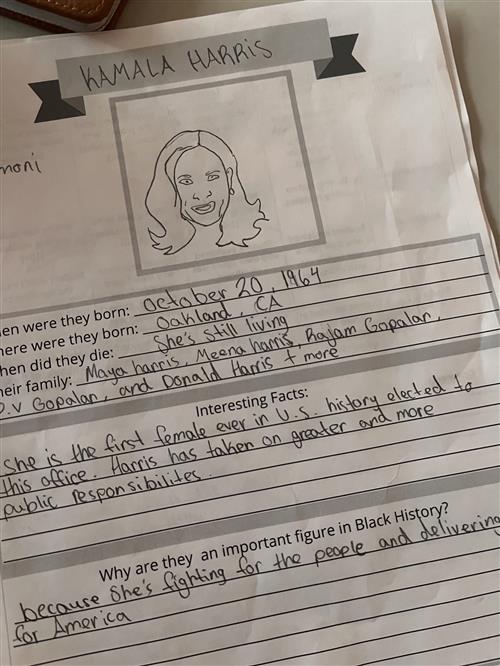 KAMALA HARRIS
moni
en were they born: october 20, 1964
here were they born: Oakland, CA
hen did they die: She's still living
heir family: Maya harris, Meena harris, Rajam Gopalan,
P.V Gopalan, and Donald Harris + more
Interesting Facts:
She is the first female ever in U.S. history elected to
this office. Harris has taken on greater and more
public responsibilites.
Why are they an important figure in Black History?
because She's fighting for the people and delivering
for America